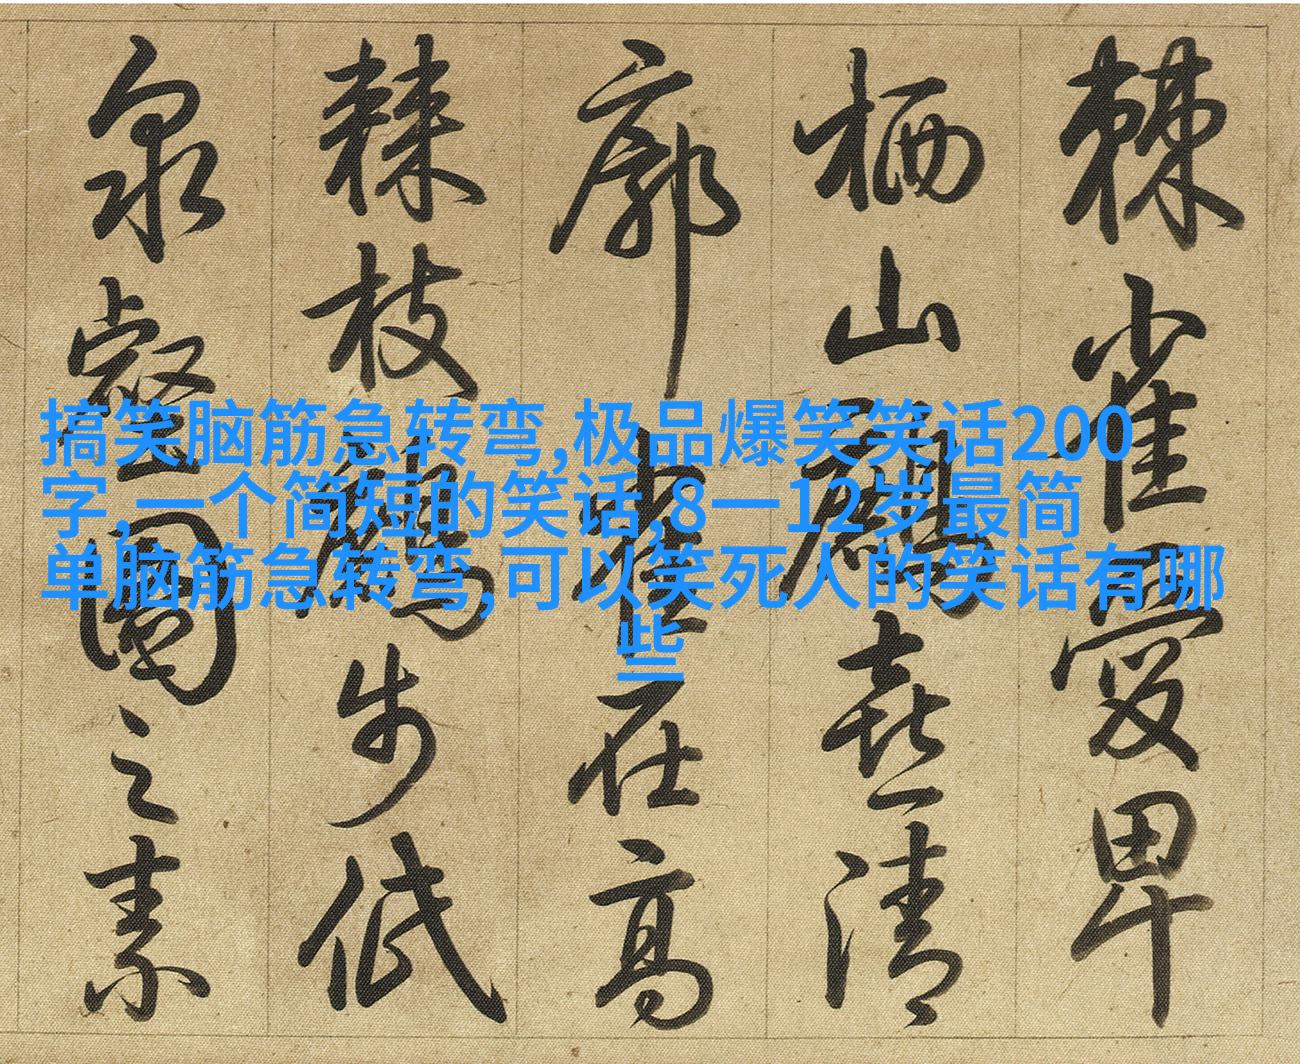 棘雀愛卑
栖山鷴喜清
廓雀在高
棘枝鷴步低
泉壑園之素
搞笑脑筋急转弯,极品爆笑笑话200
字,一个简短的笑话,8一12岁最简
单脑筋急转弯,可以笑死人的笑话有哪
些